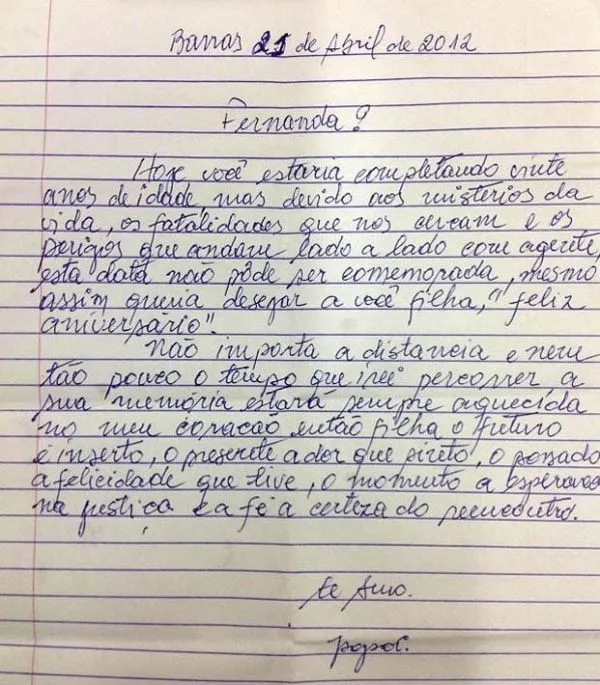 Barras 21 de Abril de 2012
Fernanda!
Hoje você estaria completando vinte
anos de idade, mas devido aos mistérios da
vida, os fatalidades que nos cercam e os
perigos que andam lado a lado com agente,
esta data não pôde ser comemorada, mesmo
assim queria desejar a você filha, "feliz
aniversário".
Não importa a distancia e nem
tão pouco o tempo que irei percorrer, a
sua memória estará sempre aquecida
no meu coração então filha o futuro
é inserto, o presente a dor que sinto, o passado
a felicidade que tive, o momento a esperança
na justiça e a fé a certeza do reencontro.
te amo.